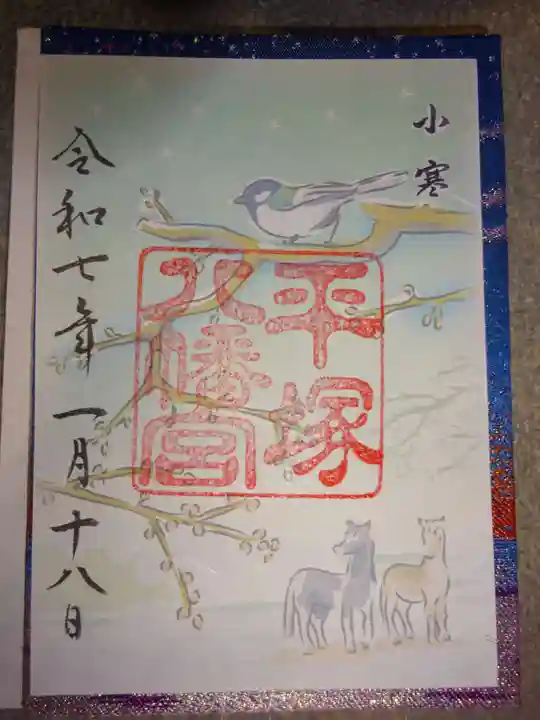 小寒
平塚
八幡宮
令和七年一月十八日